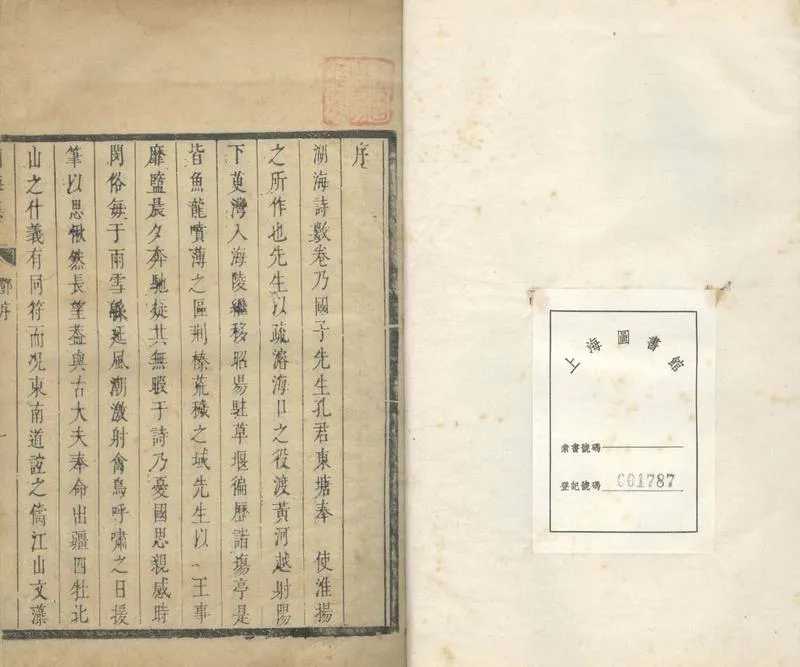 上海圖書館
索書號碼
登記號碼 001787
序
湖海詩數卷乃國子先生孔君東塘奉 使淮揚
之所作也先生以疏濬海口之役渡黃河越射陽
下茰灣入海陵繼移昭陽駐草堰徧歷諸塲亭是
皆魚龍噴薄之區荆榛荒穢之域先生以 王事
靡盬晨夕奔馳疑其無暇于詩乃憂國思親感時
閔俗每于雨雪緜延風潮激射禽鳥呼嘯之日援
筆以思愀然長望葢與古大夫奉命出疆四牡北
山之什義有同符而况東南道誼之儔江山文藻
鄧序